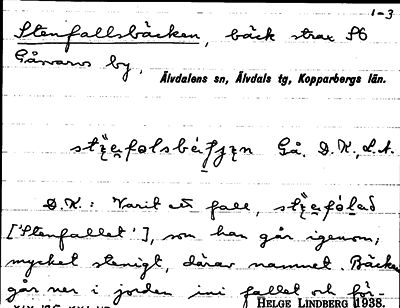 1-3
Stenfallsbäcken, bäck strax SO
Gåsvarvs by,
Älvdalens sn, Älvdals tg, Kopparbergs län.
Gå. D.K., L.A.
D.K.: Varit ett fall,
['Stenfallet'], som han går igenom;
mycket stenigt, därav namnet. Bäcken
går ner i jorden ini fallet och för-
HELGE LINDBERG 1938.